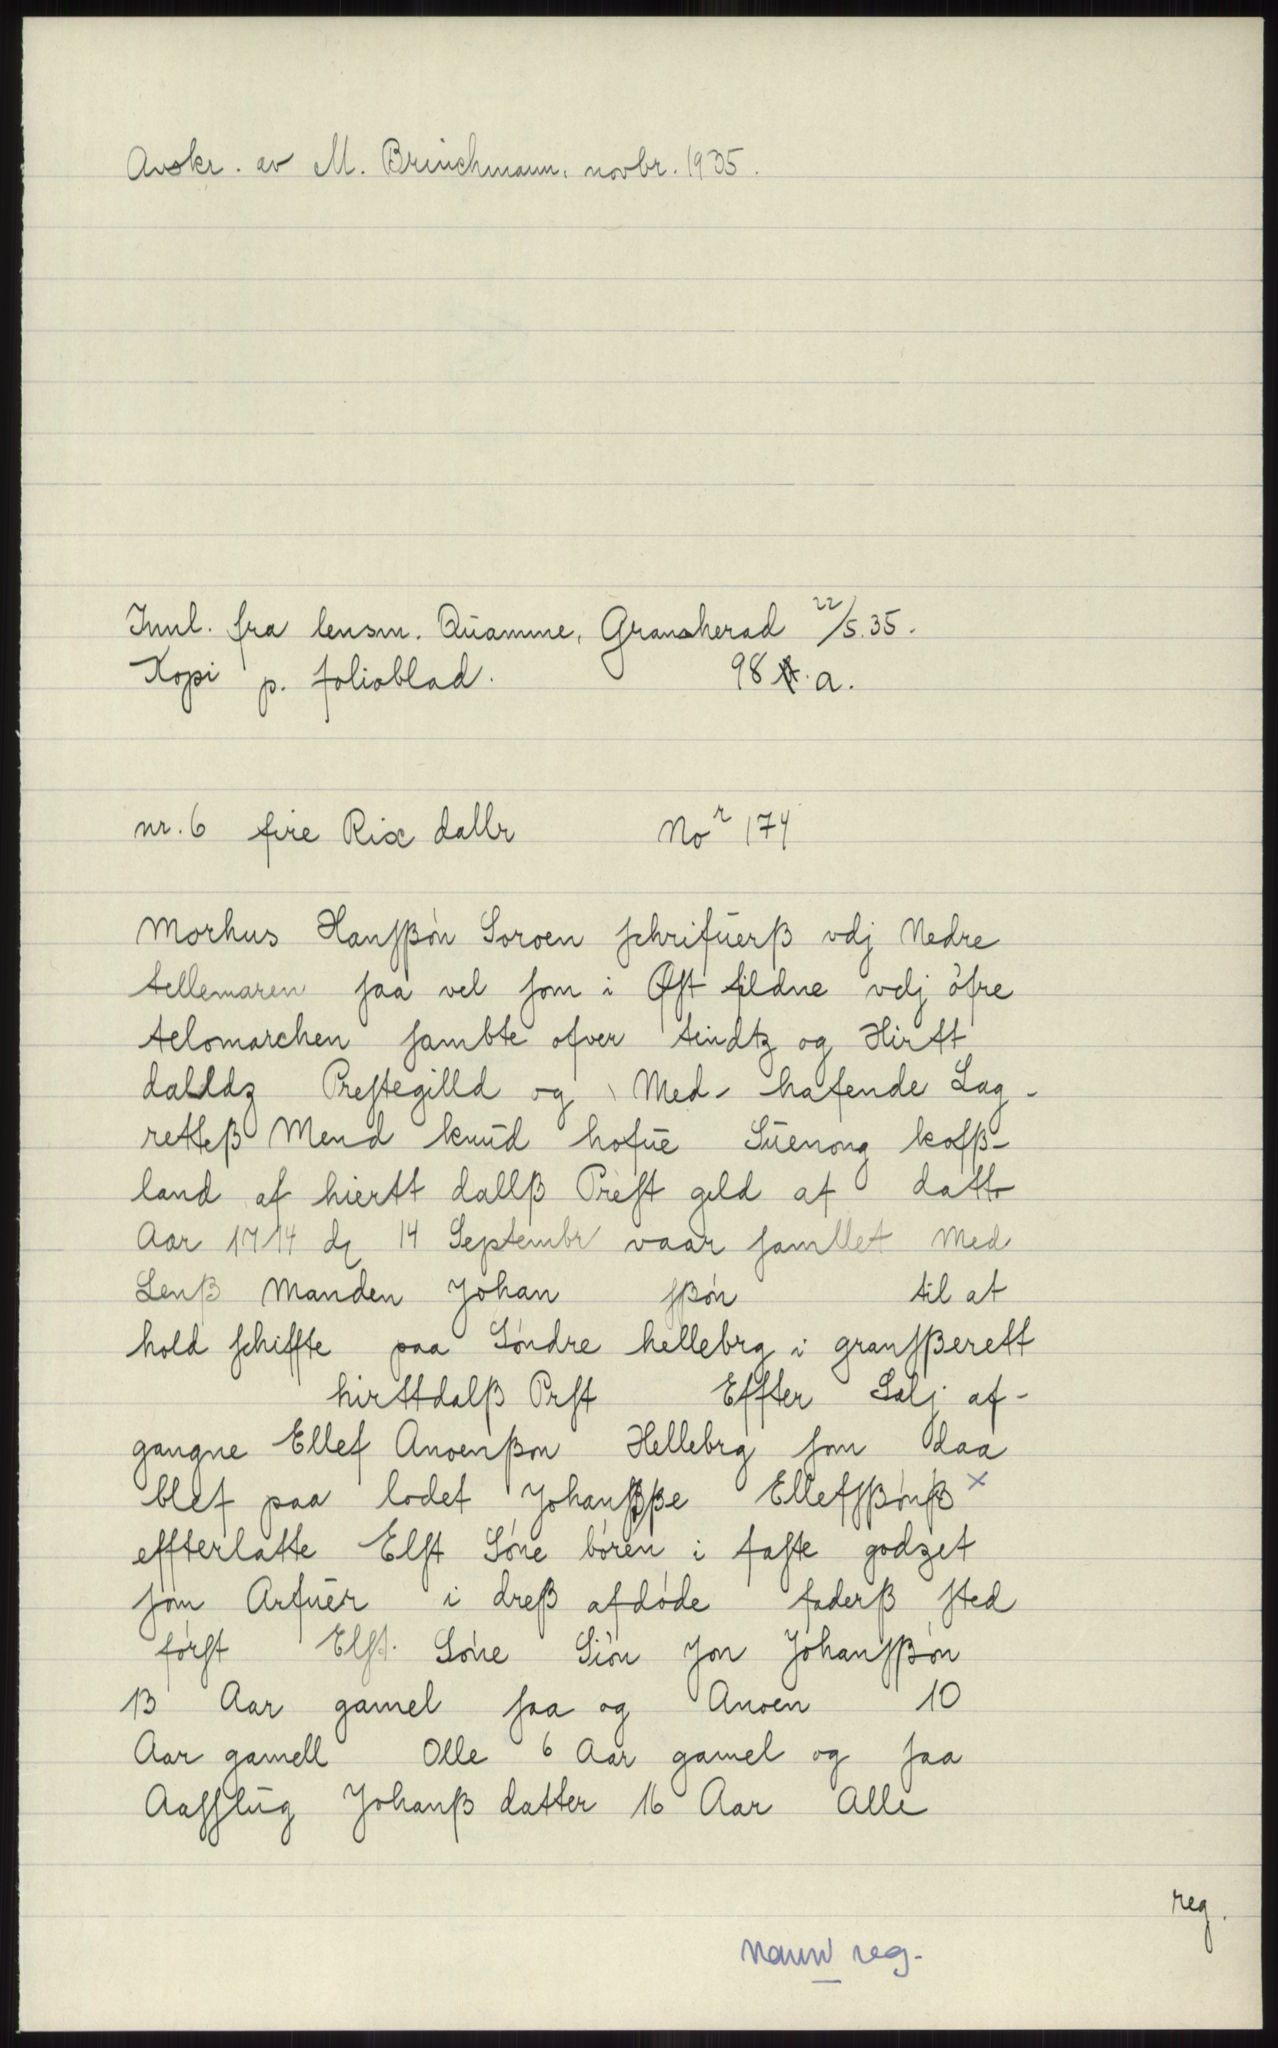 Avskr. av M. Brinchmann, novbr. 1935.
Innl. fra lensm. Quamme, Gransherad 22/5.35.
Kopi p. folioblad. 98 a.
nr. 6 fire Rix dallr No r 174
Morhus Hanſßøn Soroen ſchrifuerß vdj Nedre
tellemaren ſaa vel ſom i Øſt tildne vdj öfre
telomarchen ſambte ofver tindtz og Hirtt
dalldz Preſtegilld og Med- hafende Lag-
retteß Mend knud hofue Suenong kofß-
land af hiertt dallß Preſt geld af datto
Aar 1714 dȩ 14 Septembr vaar ſamllet Med
Lenß Manden Johan ſßøn til at
hold ſchiffte paa Söndre hellebrg i granſßerett
hirttdalß Prſt Effter Salj af-
gangne Ellef Anoenßon Hellebrg ſom daa
blef paa lodet Johanßße Ellefſßönß x
effterlatte Elſt Söne bören i faſte godzet
ſom Arfuer i dreß afdöde faderß ſted
förſt Elſt. Söne Siön Jon Johanſßön
13 Aar gamel ſaa og Anoen 10
Aar gamell Olle 6 Aar gamel og ſaa
Aaſſlüg Johanß datter 16 Aar Alle
reg.
navn reg.